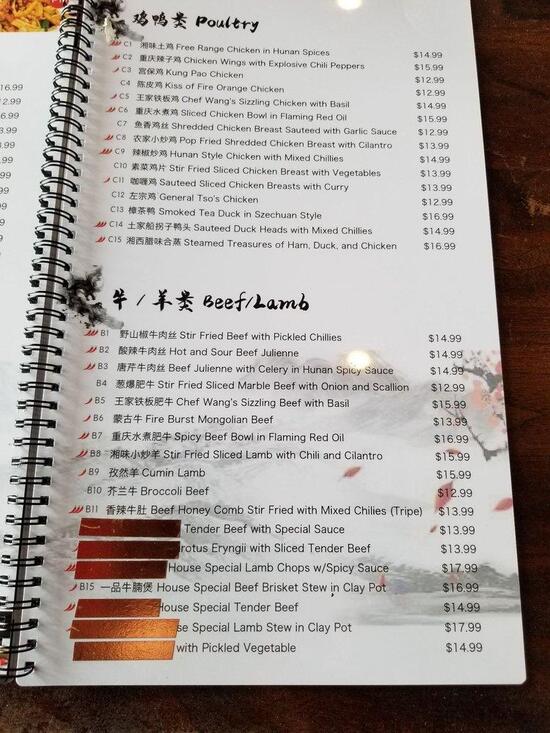 鸡鸭类 Poultry
C1 湘味土鸡 Free Range Chicken in Hunan Spices $14.99
C2 重庆辣子鸡 Chicken Wings with Explosive Chili Peppers $15.99
C3 宫保鸡 Kung Pao Chicken $12.99
C4 陈皮鸡 Kiss of Fire Orange Chicken $12.99
C5 王家铁板鸡 Chef Wang's Sizzling Chicken with Basil $14.99
C6 重庆水煮鸡 Sliced Chicken Bowl in Flaming Red Oil $15.99
C7 鱼香鸡丝 Shredded Chicken Breast Sauteed with Garlic Sauce $12.99
C8 农家小炒鸡 Pop Fried Shredded Chicken Breast with Cilantro $13.99
C9 辣椒炒鸡 Hunan Style Chicken with Mixed Chillies $14.99
C10 素菜鸡片 Stir Fried Sliced Chicken Breast with Vegetables $13.99
C11 咖喱鸡 Sauteed Sliced Chicken Breasts with Curry $13.99
C12 左宗鸡 General Tso's Chicken $12.99
C13 樟茶鸭 Smoked Tea Duck in Szechuan Style $16.99
C14 土家船拐子鸭头 Sauteed Duck Heads with Mixed Chillies $14.99
C15 湘西腊味合蒸 Steamed Treasures of Ham, Duck, and Chicken $16.99
牛/羊类 Beef/Lamb
B1 野山椒牛肉丝 Stir Fried Beef with Pickled Chillies $14.99
B2 酸辣牛肉丝 Hot and Sour Beef Julienne $14.99
B3 唐芹牛肉丝 Beef Julienne with Celery in Hunan Spicy Sauce $14.99
B4 葱爆肥牛 Stir Fried Sliced Marble Beef with Onion and Scallion $12.99
B5 王家铁板肥牛 Chef Wang's Sizzling Beef with Basil $15.99
B6 蒙古牛 Fire Burst Mongolian Beef $13.99
B7 重庆水煮肥牛 Spicy Beef Bowl in Flaming Red Oil $16.99
B8 湘味小炒羊 Stir Fried Sliced Lamb with Chili and Cilantro $15.99
B9 孜然羊 Cumin Lamb $15.99
B10 芥兰牛 Broccoli Beef $12.99
B11 香辣牛肚 Beef Honey Comb Stir Fried with Mixed Chilies (Tripe) $13.99
Tender Beef with Special Sauce $13.99
rotus Eryngii with Sliced Tender Beef $13.99
House Special Lamb Chops w/Spicy Sauce $17.99
B15 一品牛腩煲 House Special Beef Brisket Stew in Clay Pot $16.99
House Special Tender Beef $14.99
se Special Lamb Stew in Clay Pot $17.99
with Pickled Vegetable $14.99
16.99